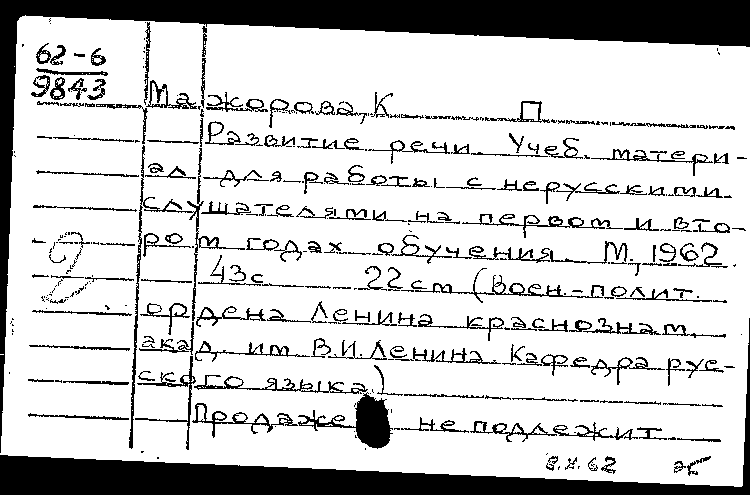 62-6
9843
Мажорова, К П
Развитие речи. Учеб. матери-
ал для работы с нерусскими
слушателями на первом и вто-
ром годах обучения. М., 1962
43с 22 cm (Воен.-полит.
ордена Ленина краснознам.
акад. им В.И. Ленина. Кафедра рус-
ского языка)
2
Продаже не подлежит
8.X.62